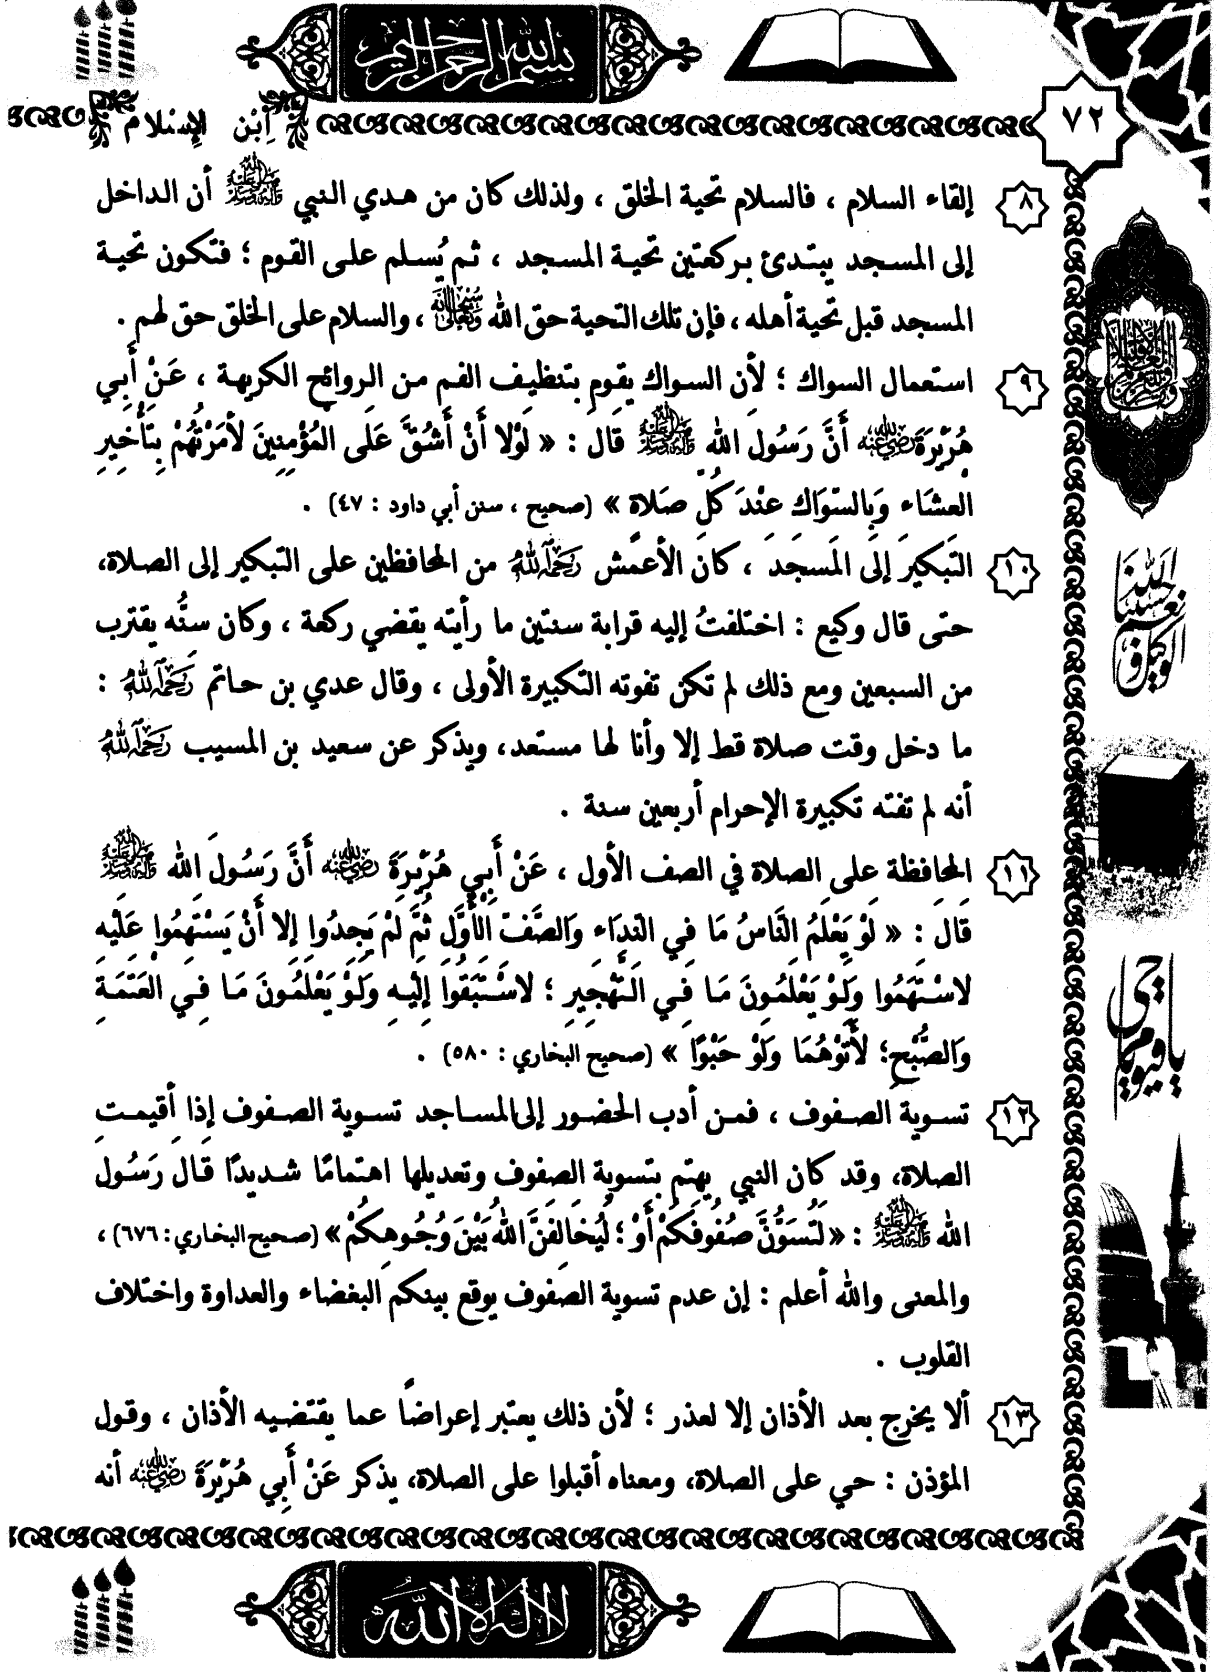 بسم الله الرحمن الرحيم
٧٢
ابْن الإسْلام
٨ إلقاء السلام ، فالسلام تحية الخلق ، ولذلك كان من هدي النبي ﷺ أن الداخل
إلى المسجد يبتدئ بركعتين تحية المسجد ، ثم يُسلم على القوم ؛ فتكون تحية
المسجد قبل تحية أهله ، فإن تلك التحية حق الله سبحانه وتعالى ، والسلام على الخلق حق لهم .
٩ استعمال السواك ؛ لأن السواك يقوم بتنظيف الفم من الروائح الكريهة ، عَنْ أَبِي
هُرَيْرَةَ رضي الله عنه أَنَّ رَسُولَ الله ﷺ قَالَ : « لَوْلا أَنْ أَشُقَّ عَلَى المُؤْمِنِينَ لأَمَرْتُهُمْ بِتَأْخِيرِ
العِشَاءِ وَبِالسِّوَاكِ عِنْدَ كُلِّ صَلاةٍ » (صحيح ، سنن أبي داود : ٤٧) .
١٠ التَّبكير إلَى المَسجد ، كان الأعمش رحمه الله من المحافظين على التبكير إلى الصلاة،
حتى قال وكيع : اختلفتُ إليه قرابة سنتين ما رأيته يقضي ركعة ، وكان سنُّه يقترب
من السبعين ومع ذلك لم تكن تفوته التكبيرة الأولى ، وقال عدي بن حاتم رحمه الله :
ما دخل وقت صلاة قط إلا وأنا لها مستعد، ويذكر عن سعيد بن المسيب رحمه الله
أنه لم تفته تكبيرة الإحرام أربعين سنة .
١١ المحافظة على الصلاة في الصف الأول ، عَنْ أَبِي هُرَيْرَةَ رضي الله عنه أَنَّ رَسُولَ الله ﷺ
قَالَ : « لَوْ يَعْلَمُ النَّاسُ مَا فِي النِّدَاءِ وَالصَّفِّ الأَوَّلِ ثُمَّ لَمْ يَجِدُوا إِلا أَنْ يَسْتَهِمُوا عَلَيْهِ
لاسْتَهَمُوا وَلَوْ يَعْلَمُونَ مَا فِي التَّهْجِيرِ ؛ لاسْتَبَقُوا إِلَيْهِ وَلَوْ يَعْلَمُونَ مَا فِي العَتَمَةِ
وَالصُّبْحِ؛ لأَتَوْهُمَا وَلَوْ حَبْوًا » (صحيح البخاري : ٥٨٠) .
١٢ تسوية الصفوف ، فمن أدب الحضور إلى المساجد تسوية الصفوف إذا أقيمت
الصلاة، وقد كان النبي يهتم بتسوية الصفوف وتعديلها اهتمامًا شديدًا قَالَ رَسُولُ
الله ﷺ : « لَتُسَوُّنَّ صُفُوفَكُمْ أَوْ ؛ لَيُخَالِفَنَّ اللهُ بَيْنَ وُجُوهِكُمْ » (صحيح البخاري : ٦٧٦) ،
والمعنى والله أعلم : إن عدم تسوية الصفوف يوقع بينكم البغضاء والعداوة واختلاف
القلوب .
١٣ ألا يخرج بعد الأذان إلا لعذر ؛ لأن ذلك يعتبر إعراضاً عما يقتضيه الأذان ، وقول
المؤذن : حي على الصلاة، ومعناه أقبلوا على الصلاة، يذكر عَنْ أَبِي هُرَيْرَةَ رضي الله عنه أنه
حسبنا الله ونعم الوكيل
يا حي يا قيوم
لا إله إلا الله